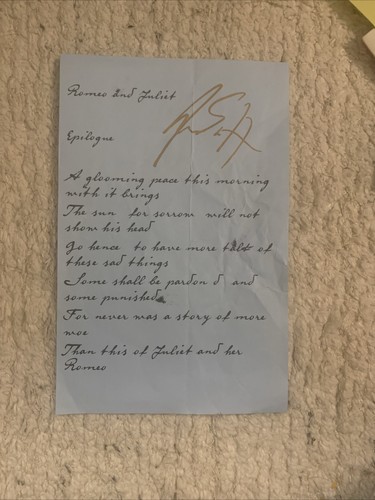 Romeo and Juliet
Epilogue
A glooming peace this morning
with it brings
The sun for sorrow will not
show his head
Go hence to have more talk of
these sad things
Some shall be pardon d and
some punished
For never was a story of more
woe
Than this of Juliet and her
Romeo